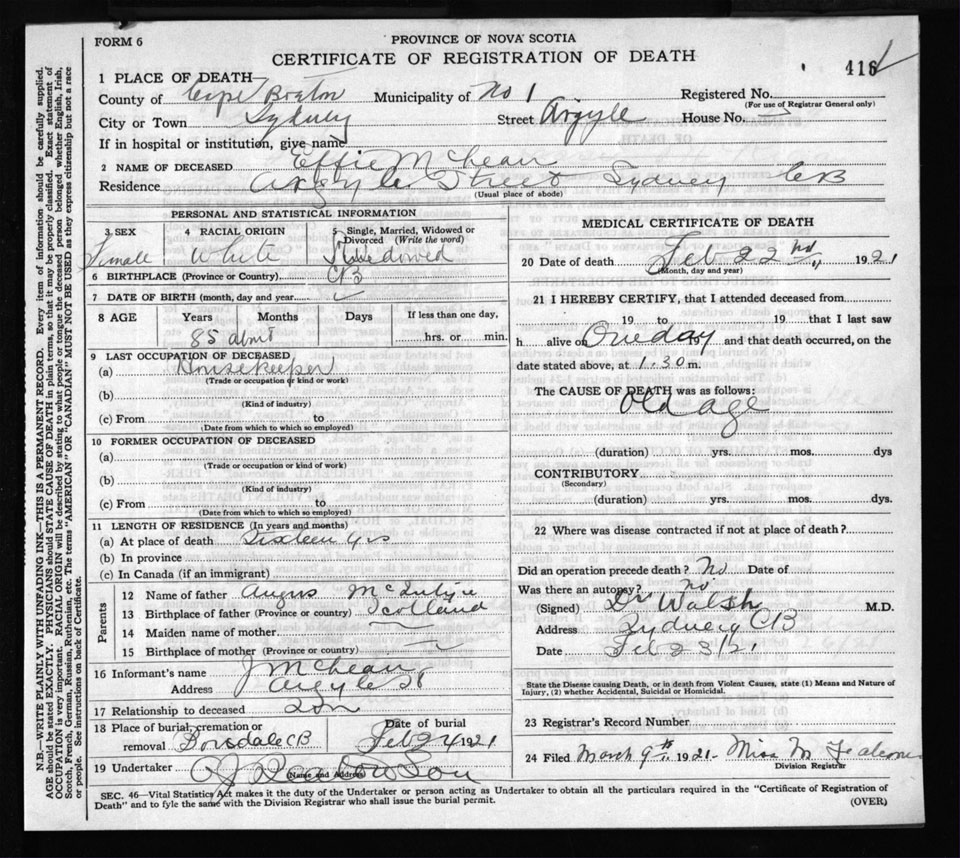 FORM 6
PROVINCE OF NOVA SCOTIA
CERTIFICATE OF REGISTRATION OF DEATH
416
1 PLACE OF DEATH
County of Cape Breton Municipality of No 1 Registered No.
(For use of Registrar General only)
City or Town Sydney Street Argyle House No.
If in hospital or institution, give name
2 NAME OF DECEASED Effie McLean
Residence Argyle Street Sydney CB
(Usual place of abode)
PERSONAL AND STATISTICAL INFORMATION
3 SEX 4 RACIAL ORIGIN 5 Single, Married, Widowed or Divorced (Write the word)
Female White Widowed
6 BIRTHPLACE (Province or Country) CB
7 DATE OF BIRTH (month, day and year)
8 AGE Years Months Days If less than one day,
hrs. or min.
85 abt
9 LAST OCCUPATION OF DECEASED
(a) Housekeeper
(Trade or occupation or kind or work)
(b)
(Kind of industry)
(c) From to
(Date from which to which so employed)
10 FORMER OCCUPATION OF DECEASED
(a)
(Trade or occupation or kind of work)
(b)
(Kind of industry)
(c) From to
(Date from which to which so employed)
11 LENGTH OF RESIDENCE (In years and months)
(a) At place of death Sixteen yrs
(b) In province
(c) In Canada (if an immigrant)
Parents
12 Name of father Angus McIntyre
13 Birthplace of father (Province or country) Scotland
14 Maiden name of mother
15 Birthplace of mother (Province or country)
16 Informant's name J McLean
Address Argyle St
17 Relationship to deceased Son
18 Place of burial, cremation or removal CB
Date of burial Feb 24 1921
19 Undertaker Son
(Name and Address)
MEDICAL CERTIFICATE OF DEATH
20 Date of death Feb 22nd 1921
(Month, day and year)
21 I HEREBY CERTIFY, that I attended deceased from
19 to 19 that I last saw
h alive on One day 19 and that death occurred, on the
date stated above, at 1.30 m.
The CAUSE OF DEATH was as follows:
Old age
(duration) yrs. mos. dys
CONTRIBUTORY
(Secondary)
(duration) yrs. mos. dys.
22 Where was disease contracted if not at place of death?
Did an operation precede death? No Date of
Was there an autopsy? no
(Signed) Dr Walsh M.D.
Address Sydney CB
Date Feb 23/21
State the Disease causing Death, or in death from Violent Causes, state (1) Means and Nature of
Injury, (2) whether Accidental, Suicidal or Homicidal.
23 Registrar's Record Number
24 Filed March 9th 1921. Miss M
Division Registrar
SEC. 46—Vital Statistics Act makes it the duty of the Undertaker or person acting as Undertaker to obtain all the particulars required in the "Certificate of Registration of
Death" and to fyle the same with the Division Registrar who shall issue the burial permit.
(OVER)
N.B.—WRITE PLAINLY WITH UNFADING INK—THIS IS A PERMANENT RECORD. Every item of information should be carefully supplied.
AGE should be stated EXACTLY. PHYSICIANS should STATE CAUSE OF DEATH in plain terms, so that it may be properly classified. Exact statement of
OCCUPATION is very important. RACIAL ORIGIN will be described by stating to what people or tongue the deceased person belonged, whether English, Irish,
Scotch, French, German, Russian, Ruthenian, etc. The terms "AMERICAN" or "CANADIAN" MUST NOT BE USED as they express citizenship but not a race
or people. See instructions on back of Certificate.